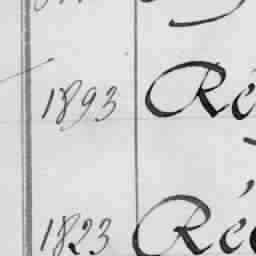 1893 Ré
1823 Rée